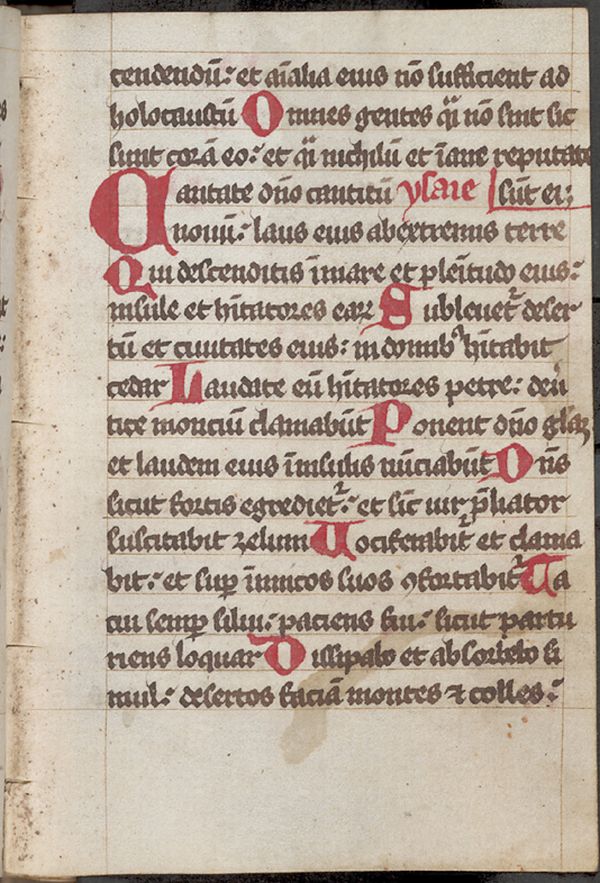 cendendū: et aīalia eius nō sufficient ad
holocaustū Omnes gentes q̄i nō sint sic
sunt corā eo: et q̄i nichilū et īane reputate
Cantate dn̄o canticū ysaie sūt ei;
nouū: laus eius ab extremis terre
Qui descenditis ī mare et plēitudo eius:
insule et hītatores earꝝ Subleuet᷑ deser
tū et ciuitates eius: in domibꝰ hītabit
cedar Laudate eū hītatores petre: de u̾
tice montiū clamabūt Ponent dn̄o gl̄aꝫ
et laudem eius ī insulis nūciabūt Dn̄s
sicut fortis egrediet᷑: et sīc uir p̄liator
suscitabit zelum Uociferabit᷑ et clama
bit: et sup̄ inimicos suos ꝯfortabit᷑ Ta
cui semp̄ silui: paciens fui: sicut partu
riens loquar Dissipabo et absorbebo si
mul: desertos faciā montes ⁊ colles: